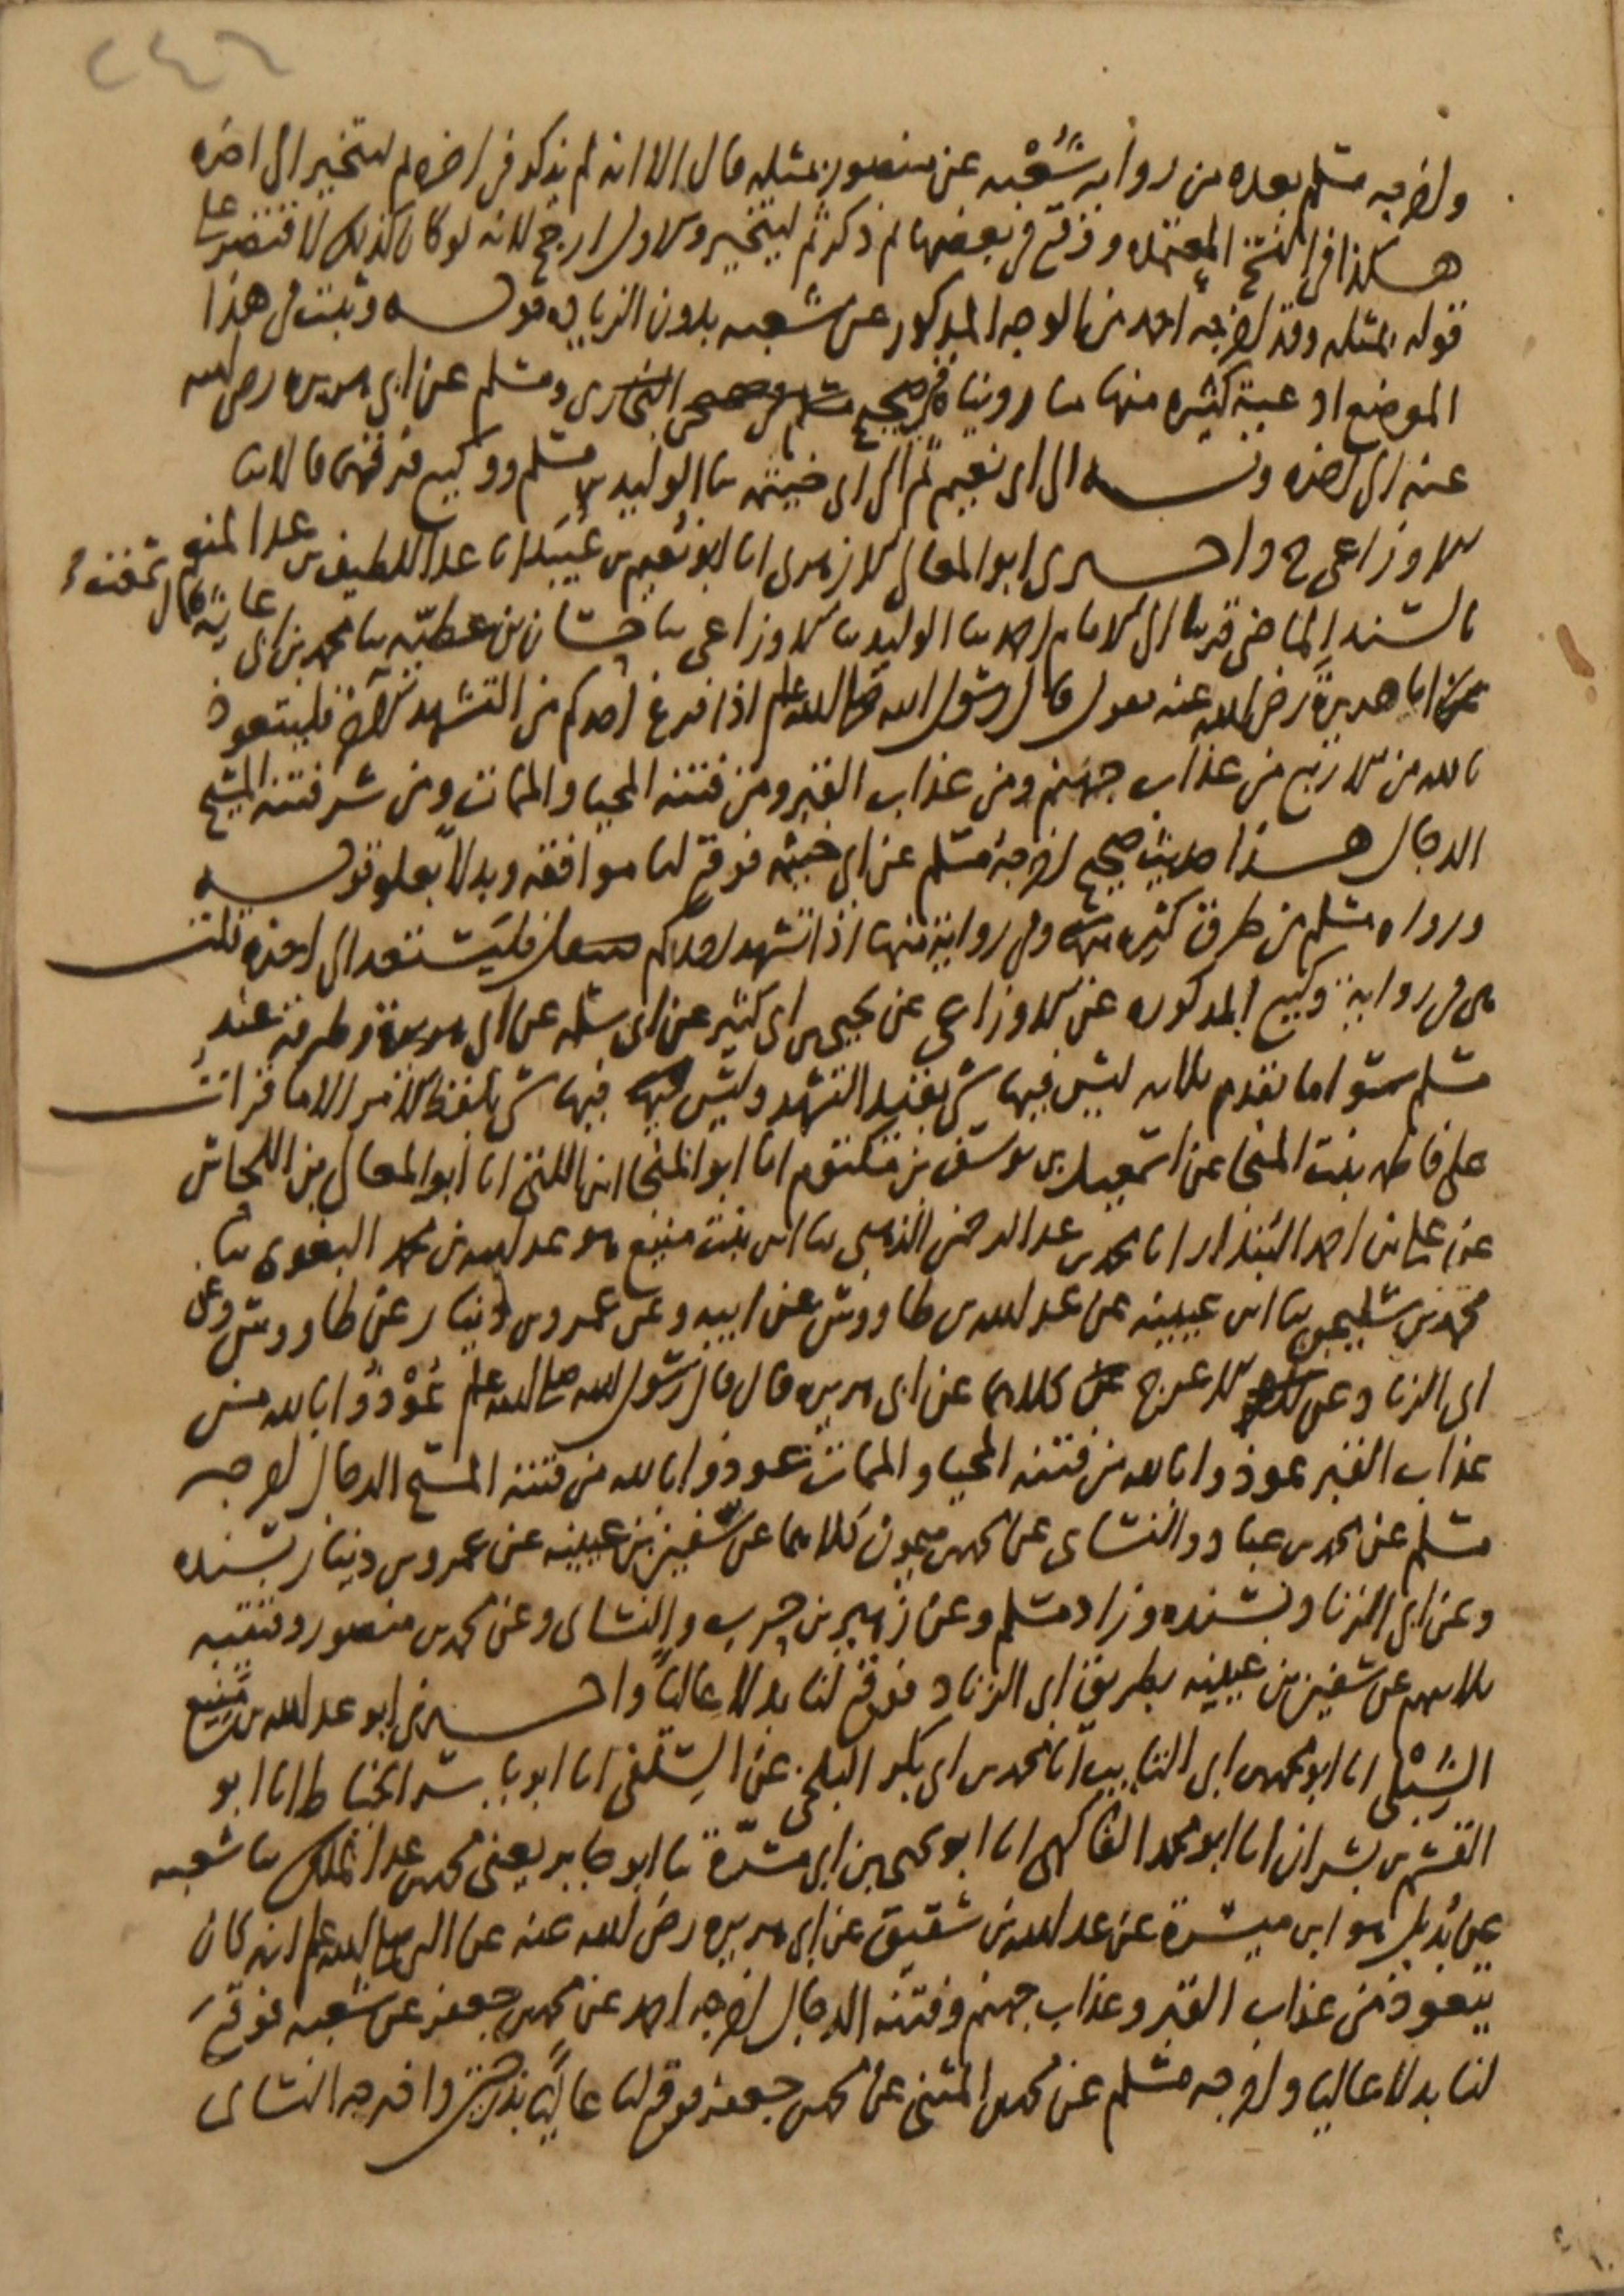 ٢٤٦
واخرجه مسلم بعده من رواية شُعْبه عن منصور بمثله قال الا انه لم يذكر في اخره ثم ليتخير الى اخره
هكذا في النسخ المعتمده ووقع في بعضها لم يذكر ثم ليتخير والاول ارجح لانه لو كان كذلك لاقتصر على
قوله بمثله وقد اخرجه احمد من الوجه المذكور عن شعبه بدون الزياده قوله وثبت في هذا
الموضع ادعية كثيره منها ما روينا في صحيح البخارى ومسلم عن ابى هريره رضى الله
عنه الى اخره وبه الى ابى نعيم ثم الى ابى خيثمه ثنا الوليد بن مسلم ووكيع فرقهما قالا ثنا
الاوزاعى ح واخبرنى ابو المعالى الازهرى انا ابو نعيم بن عُبَيد انا عبد اللطيف بن عبد المنعم
بالسند الماضى قريبا الى الامام احمد ثنا الوليد ثنا الاوزاعى ثنا حسان بن عطيّه ثنا محمد بن ابى عايشه قال سمعت
ابا هريرة رضى الله عنه يقول قال رسول الله صلى الله عليه وسلم اذا فرغ احدكم من التشهد الاخر فليتعوذ
بالله من الاربع من عذاب جهنم ومن عذاب القبر ومن فتنه المحيا والممات ومن شر فتنه المسيح
الدجال هذا حديث صحيح اخرجه مسلم عن ابى خيثمه فوقع لنا موافقه وبدلا بعلو قوله
ورواه مسلم من طرق كثيره وفى رواية منها اذا تشهد احدكم فليستعذ الى اخره قلت
هى فى رواية وكيع المذكوره عن الاوزاعى عن يحيى بن ابى كثير عن ابى سلمه عن ابى هريرة وطرقه عند
مسلم سوا ما تقدم ثلاثه ليس فيها شى بقيد التشهد وليس فيها شى بلفظ الامر الا ما قرات
على فاطمه بنت المنجا عن اسمعيل بن يوسف بن مكتوم انا ابو المنجا ابن اللتى انا ابو المعالى بن اللحاس
عن على بن احمد البندار انا محمد بن عبد الرحمن الذهبى ثنا ابن بنت منيع هو عبد الله بن محمد البغوى ثنا
محمد بن سليمن ثنا ابن عيينه عن عبد الله بن طاووس عن ابيه وعن عمرو بن دينار عن طاووس وعن
ابى الزناد عن الاعرج كلاهما عن ابى هريره قال قال رسول الله صلى الله عليه وسلم عُوْذُوا بالله من
عذاب القبر عوذوا بالله من فتنه المحيا والممات عوذوا بالله من فتنه المسيح الدجال اخرجه
مسلم عن محمد بن عباد والنساى عن محمد بن ميمون كلاهما عن سفين بن عيينه عن عمرو بن دينار بسنده
وعن ابى الزناد بسنده وزاد مسلم وعن زهير بن حرب والنساى وعن محمد بن منصور وقتيبه
ثلاثتهم عن سفين بن عيينه بطريق ابى الزناد فوقع لنا بدلا عاليا واخبرنى ابو عبد الله بن منيع
الشِبْلى انا ابو محمد بن ابى التايب انا محمد بن ابى بكر البلخى عن السِلَفى انا ابو ياسر الخياط انا ابو
القسم بن بشران انا ابو محمد الفاكهى انا ابو يحيى بن ابى مسرّة ثنا ابو جابر يعنى محمد بن عبد الملك ثنا شعبه
عن بُدَيل هو ابن ميسرة عن عبد الله بن شقيق عن ابى هريره رضى الله عنه عن النبى صلى الله عليه وسلم انه كان
يتعوذ من عذاب القبر وعذاب جهنم وفتنه الدجال اخرجه احمد عن محمد بن جعفر عن شعبه فوقع
لنا بدلا عاليا واخرجه مسلم عن محمد بن المثنى عن محمد بن جعفر فوقع لنا عاليا بدرجتين واخرجه النساى